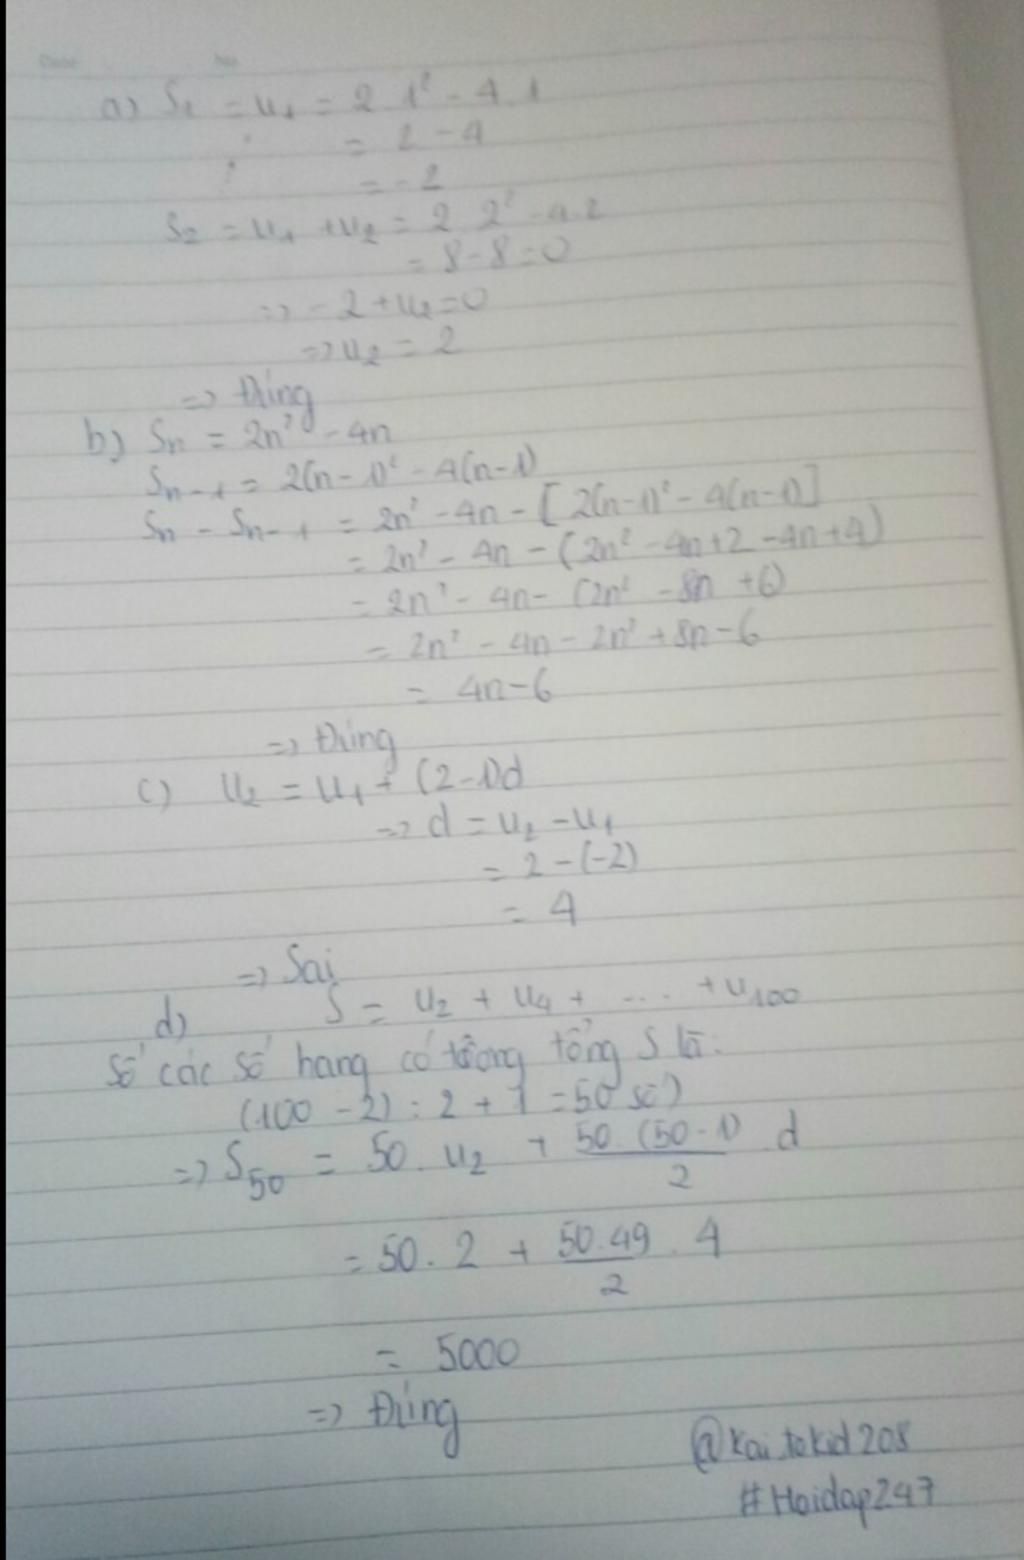 a) S₁ = u₁ = 2.1² - 4.1
= 2 - 4
= -2
S₂ = u₁ + u₂ = 2.2² - 4.2
= 8 - 8 = 0
=> -2 + u₂ = 0
=> u₂ = 2
=> Đúng
b) Sn = 2n² - 4n
Sn-1 = 2(n-1)² - 4(n-1)
Sn - Sn-1 = 2n² - 4n - [2(n-1)² - 4(n-1)]
= 2n² - 4n - (2n² - 4n + 2 - 4n + 4)
= 2n² - 4n - (2n² - 8n + 6)
= 2n² - 4n - 2n² + 8n - 6
= 4n - 6
=> Đúng
c) u₂ = u₁ + (2-1)d
=> d = u₂ - u₁
= 2 - (-2)
= 4
=> Sai
d) S = u₂ + u₄ + ... + u₁₀₀
Số các số hạng có trong tổng S là:
(100 - 2) : 2 + 1 = 50 số)
=> S₅₀ = 50.u₂ + 50.(50-1)/2 . d
= 50.2 + 50.49/2 . 4
= 5000
=> Đúng
@kaitokid208
#Hoidap247